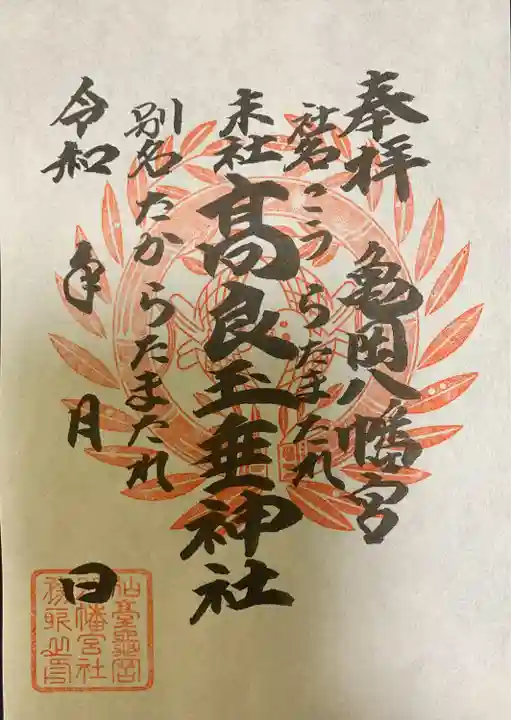 奉拝 亀岡八幡宮
社名 こうらたまたれ
末社 髙良玉垂神社
別名 たからたまたれ
令和 年 月 日